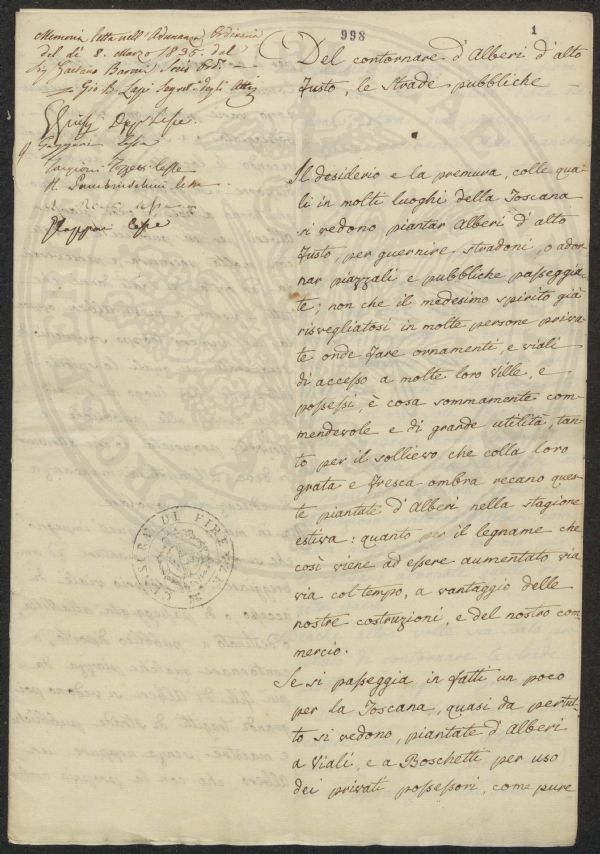 998
1
Memoria letta nell'Adunanza Ordinaria
del dì 8. Marzo 1835. dal
Sig Gaetano Baroni Socio Ord.
Gio B. Lapi Segret. degli Atti
Del contornare d'Alberi d'alto
fusto, le strade pubbliche
Il desiderio e la premura, colle qua-
li in molti luoghi della Toscana
si vedono piantar Alberi d'alto
fusto, per guernire stradoni, o ador-
nar piazzali e pubbliche passeggia-
te; non che il medesimo spirito già
risvegliatosi in molte persone priva-
te onde fare ornamenti, e viali
di accesso a molte loro Ville, e
possessi, è cosa sommamente com-
mendevole e di grande utilità, tan-
to per il sollievo che colla loro
grata e fresca ombra recano que-
ste piantate d'Alberi nella stagione
estiva: quanto per il legname che
così viene ad essere aumentato via
via col tempo, a vantaggio delle
nostre costruzioni, e del nostro com-
mercio.
Se si passeggia in fatti un poco
per la Toscana, quasi da pertut-
to si vedono, piantate d'Alberi
a Viali, e a Boschetti per uso
dei privati possessori, come pure
CENSURA DI FIRENZE